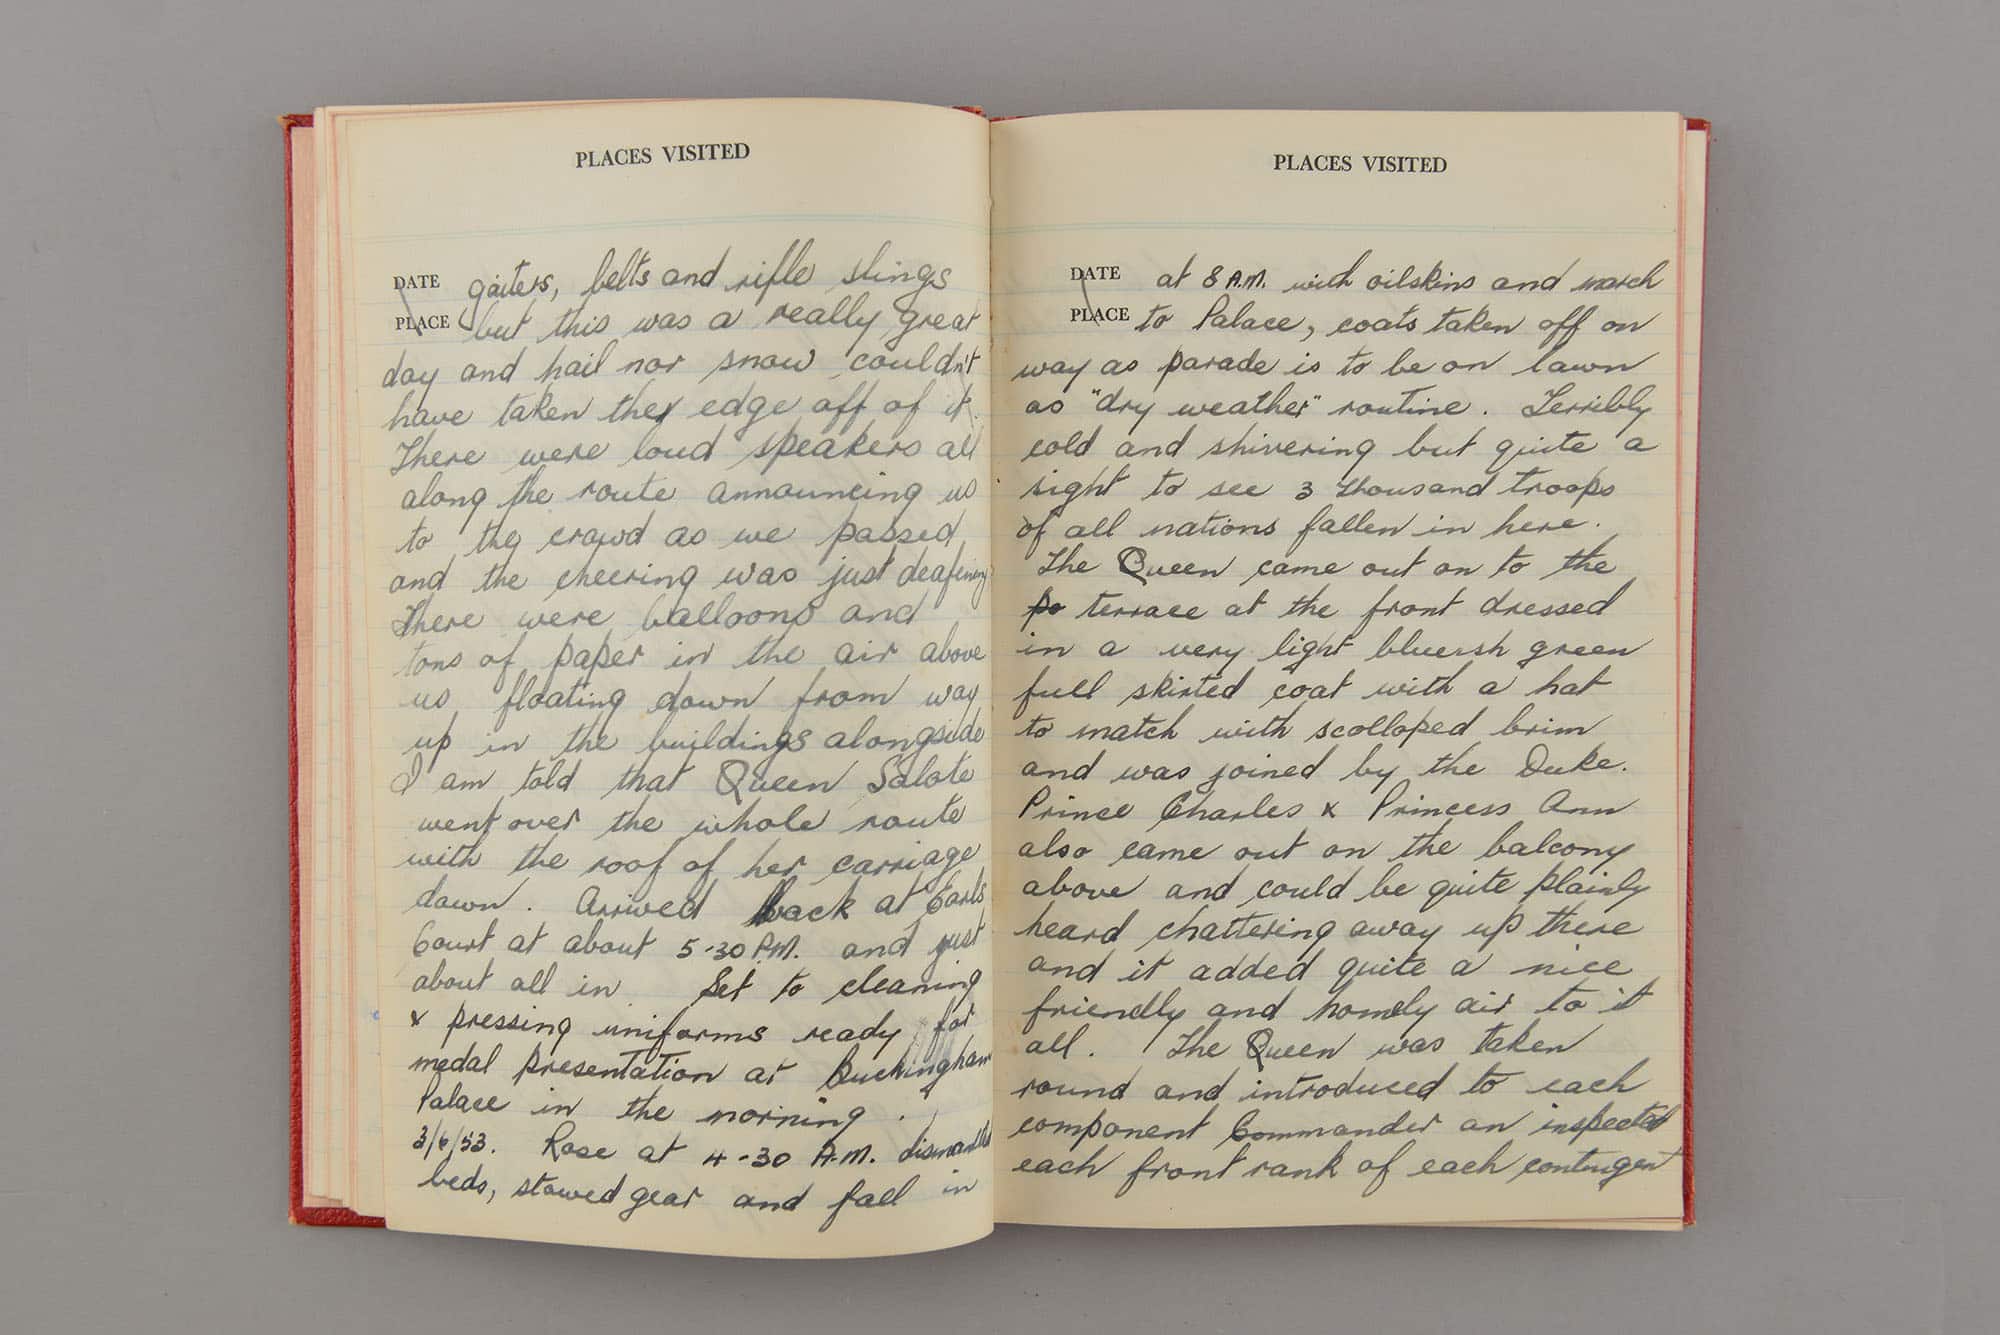 PLACES VISITED
DATE gaiters, belts and rifle slings
PLACE but this was a really great
day and hail nor snow couldn't
have taken the edge off of it.
There were loud speakers all
along the route announcing us
to the crowd as we passed
and the cheering was just deafening
There were balloons and
tons of paper in the air above
us floating down from way
up in the buildings alongside
I am told that Queen Salote
went over the whole route
with the roof of her carriage
down. Arrived back at Earls
Court at about 5-30 P.M. and just
about all in. Set to cleaning
& pressing uniforms ready for
medal presentation at Buckingham
Palace in the morning.
3/6/53. Rose at 4-30 A.M. dismantled
beds, stowed gear and fall in
PLACES VISITED
DATE at 8 A.M. with oilskins and march
PLACE to Palace, coats taken off on
way as parade is to be on lawn
as "dry weather" routine. Terribly
cold and shivering but quite a
sight to see 3 thousand troops
of all nations fallen in here.
The Queen came out on to the
po terrace at the front dressed
in a very light blueish green
full skirted coat with a hat
to match with scolloped brim
and was joined by the Duke.
Prince Charles & Princess Ann
also came out on the balcony
above and could be quite plainly
heard chattering away up there
and it added quite a nice
friendly and homely air to it
all. The Queen was taken
round and introduced to each
component Commander an inspected
each front rank of each contingent